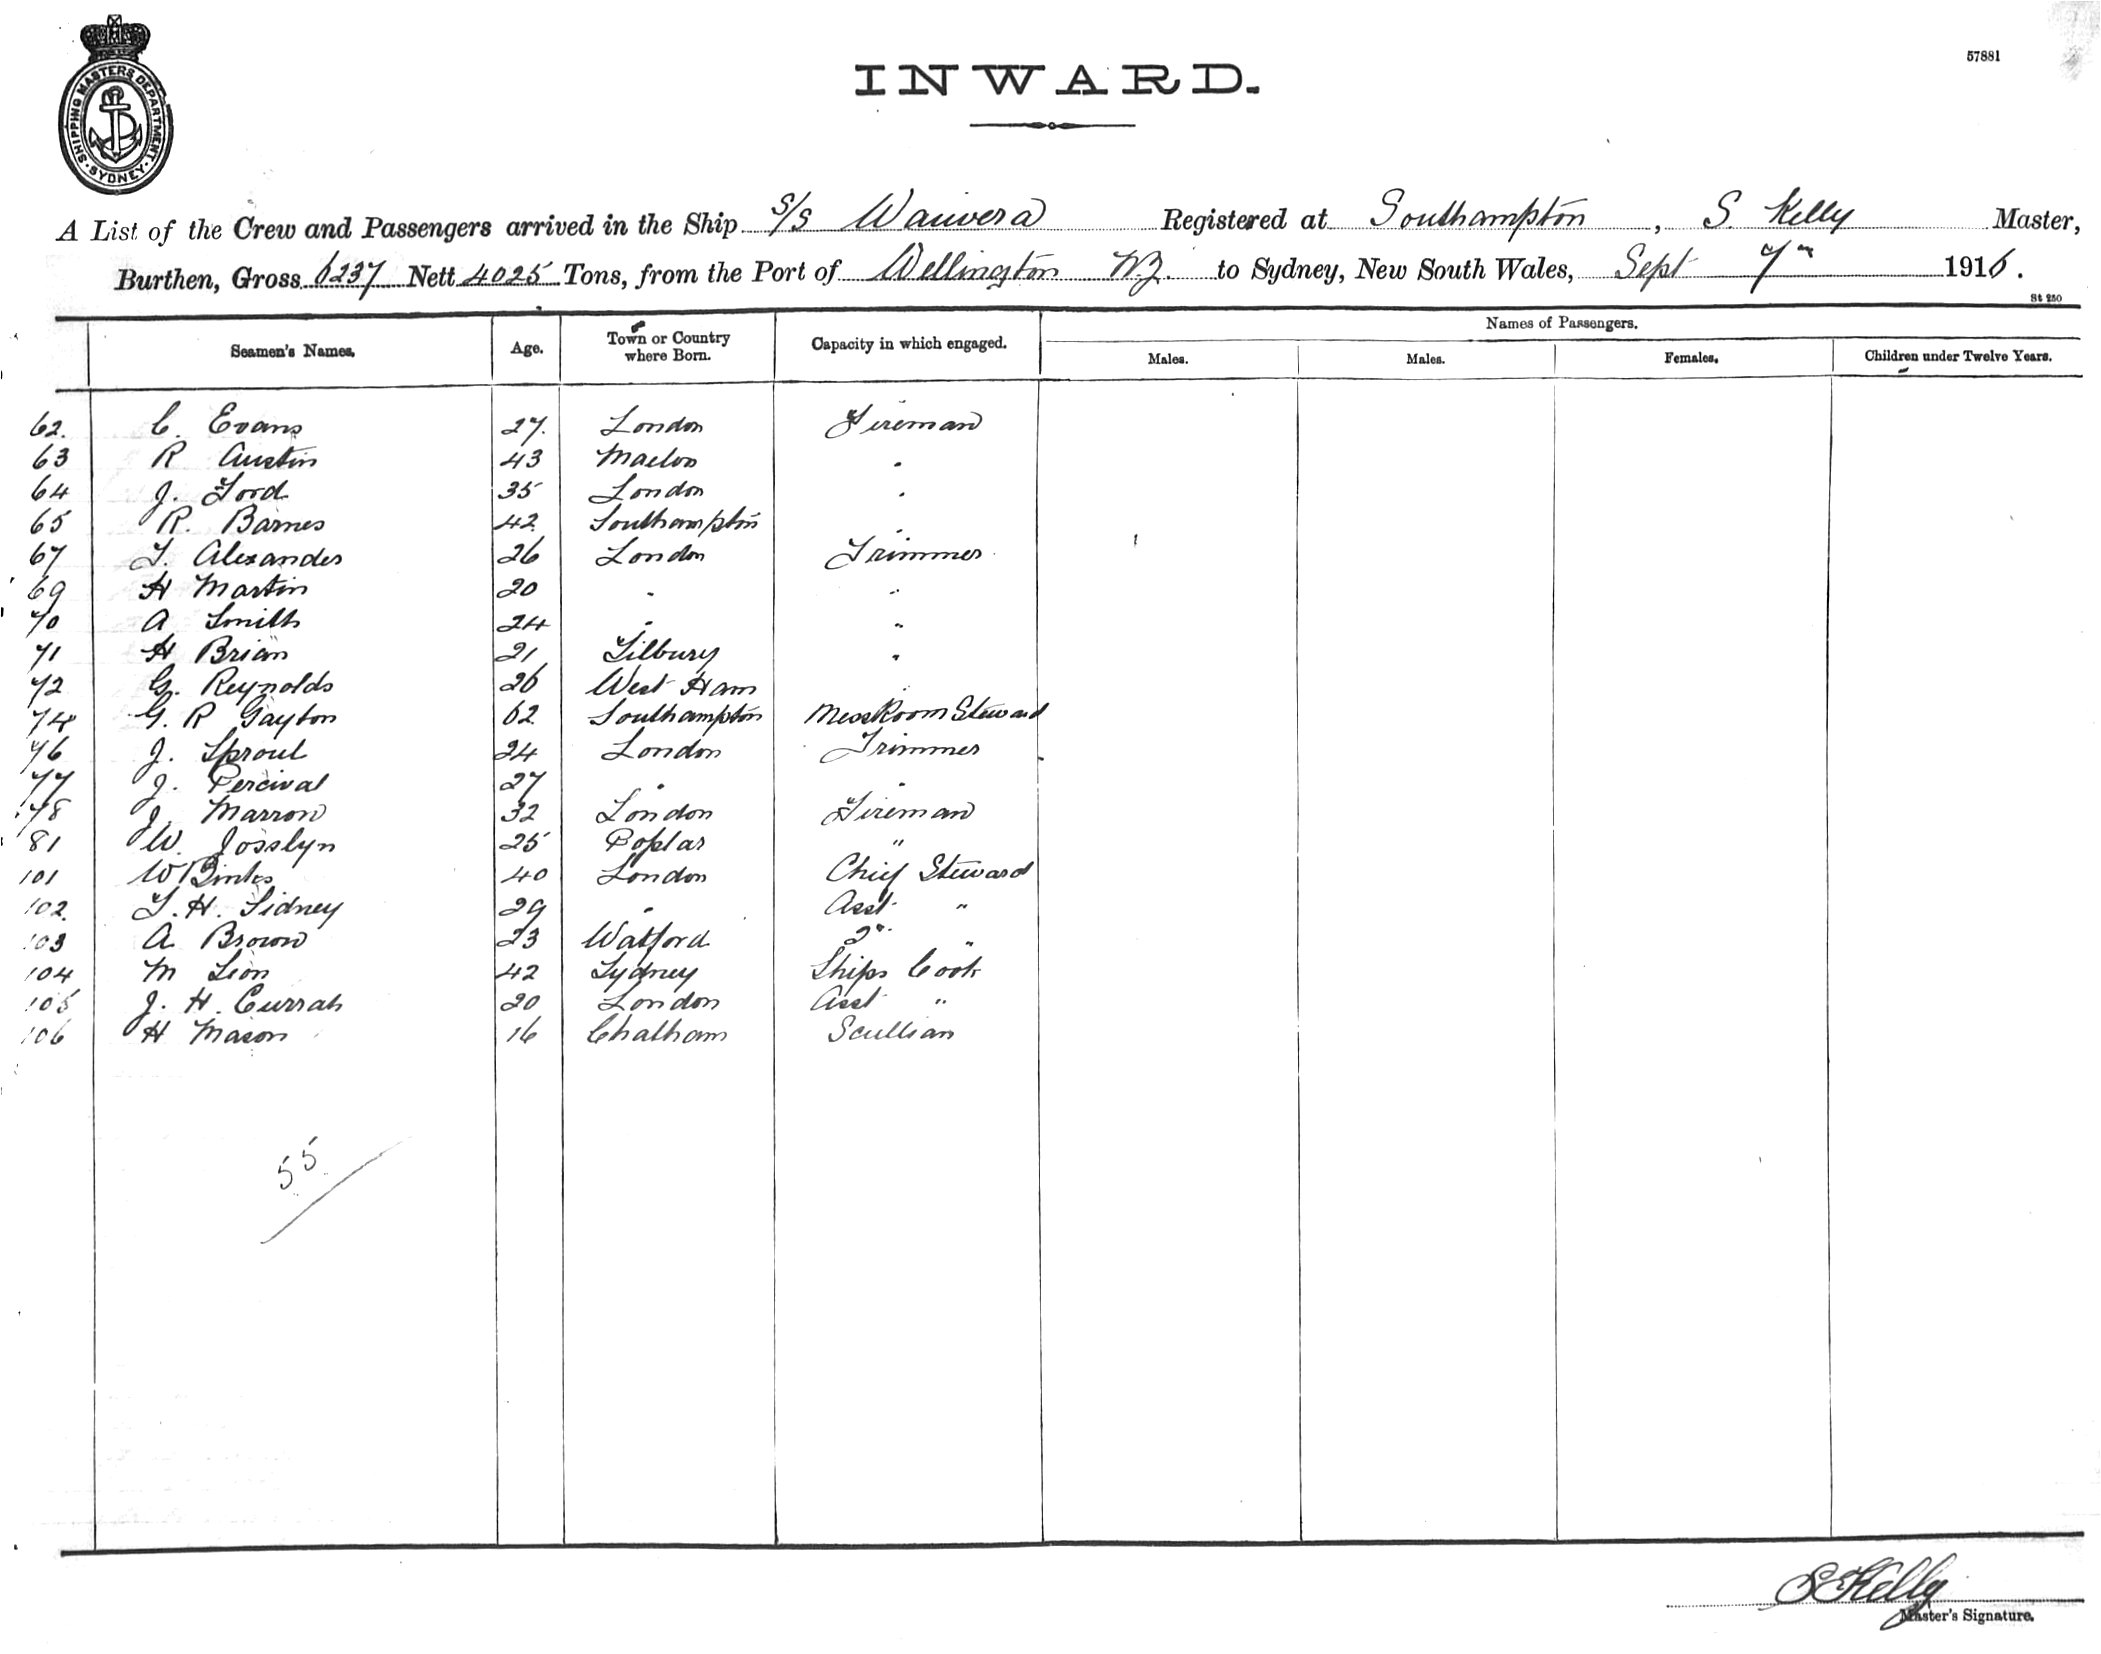 57881
SHIPPING MASTERS DEPARTMENT. SYDNEY
INWARD.
A List of the Crew and Passengers arrived in the Ship S/S Waiwera Registered at Southampton, S. Kelly Master,
Burthen, Gross 6237 Nett 4025 Tons, from the Port of Wellington N.Z. to Sydney, New South Wales, Sept 7th 1916.
St 250
Seamen's Names. Age. Town or Country where Born. Capacity in which engaged. Names of Passengers.
Males. Males. Females. Children under Twelve Years.
62. C. Evans 27. London Fireman
63 R Austin 43 "
64 J. Ford 35 London "
65 R. Barnes 42 Southampton "
67 T. Alexander 26 London Trimmer
69 H Martin 20 " "
70 A Smith 24 " "
71 H Brian 21 Tilbury "
72 G. Reynolds 26 West Ham "
74 G. R Gayton 62 Southampton Mess Room Steward
76 J. Sproul 24 London Trimmer
77 J. Percival 27 " "
78 J. Marron 32 London Fireman
81 W. Josslyn 25 Poplar "
101 W Binks 40 London Chief Steward
102. T. H. Sidney 29 " Asst "
103 A Brown 23 Watford 2nd "
104 M Leon 42 Sydney Ships Cook
105 J. H. Currah 20 London Asst "
106 H Mason 16 Chatham Scullian
55
S Kelly
Master's Signature.